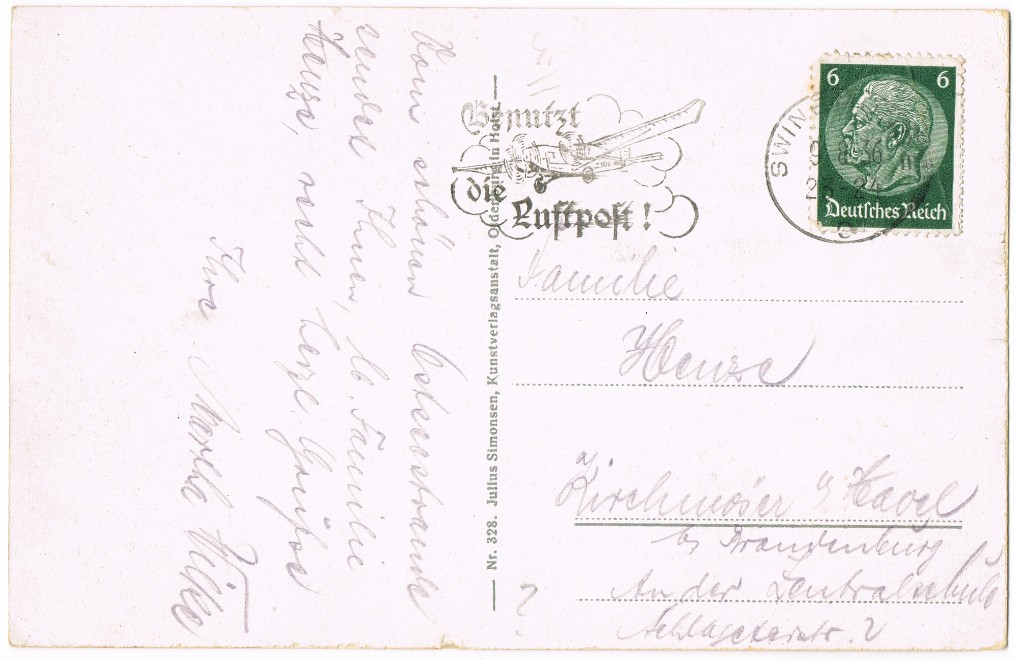 Vom schönen Ostseestrande
sendet Ihnen, lb. Familie
Henze, recht herzl. Grüße
Ihre Martha Wilke
Nr. 328. Julius Simonsen, Kunstverlagsanstalt, Oldenburg in Holst.
Benutzt
die Luftpost!
SWIN
36
24
6 6
Deutsches Reich
Familie
Henze
Kirchmöser a/Havel
b/ Brandenburg
An der Zentralschule
Schlageterstr. 2
2.